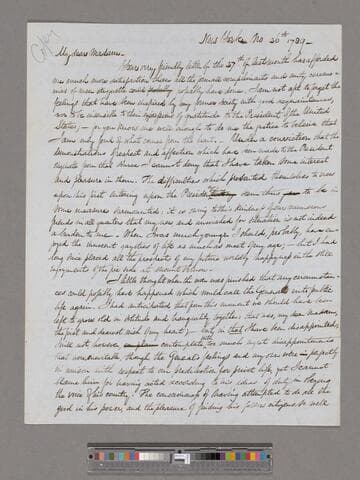 Copy
New York No. 26th 1789.
My dear Madam.
Your very friendly letter of the 27th of last month has afforded
me much more satisfaction than all the formal compliments and empty ceremo-
nies of mere etiquette could possibly have done. I am not apt to forget the
feelings that have been inspired by my former society with good acquaintances,
nor to be insensible to their expressions of gratitude to the President of the United
States; for you know me well enough to do me the justice to believe that
I am only fond of what comes from the heart. Under a conviction that the
demonstrations of respect and affection which have been made to the President
originate from that source I cannot deny that I have taken some interest
and pleasure in them. The difficulties which presented themselves to view
upon his first entering upon the Presidency seem thus to be in
some measure surmounted: it is owing to this kindness of our numerous
friends in all quarters that my new and unwished for situation is not indeed
a burden to me. When I was much younger I should, probably, have en-
joyed the innocent gayeties of life as much as most of my age; but I had
long since placed all the prospects of my future worldly happiness in the still
enjoyments of the fire side at Mount Vernon.
I little thought when the war was finished that any circumstan-
ces could possibly have happened which would call the General into public
life again. I had anticipated that from this moment we should have been
left to grow old in solitude and tranquility together: that was, my dear madam,
the first and dearest wish of my heart; but in that I have been disappointed;
I will not however contemplate with too much regret disappointments
that were inevitable, though the General's feelings and my own were perfectly
in unison with respect to our predilection for private life, yet I cannot
blame him for having acted according to his ideas of duty in obeying
the voice of his country. The consciousness of having attempted to do all the
good in his power, and the pleasure of finding his fellow citizens so well